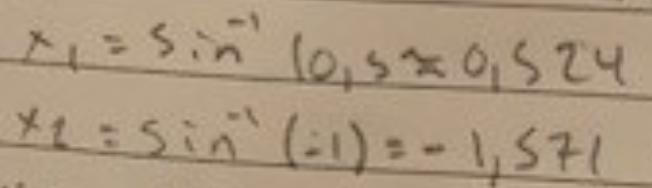 x₁ = sin⁻¹ (0,5 ≈ 0,524
x₂ = sin⁻¹ (-1) = - 1,571